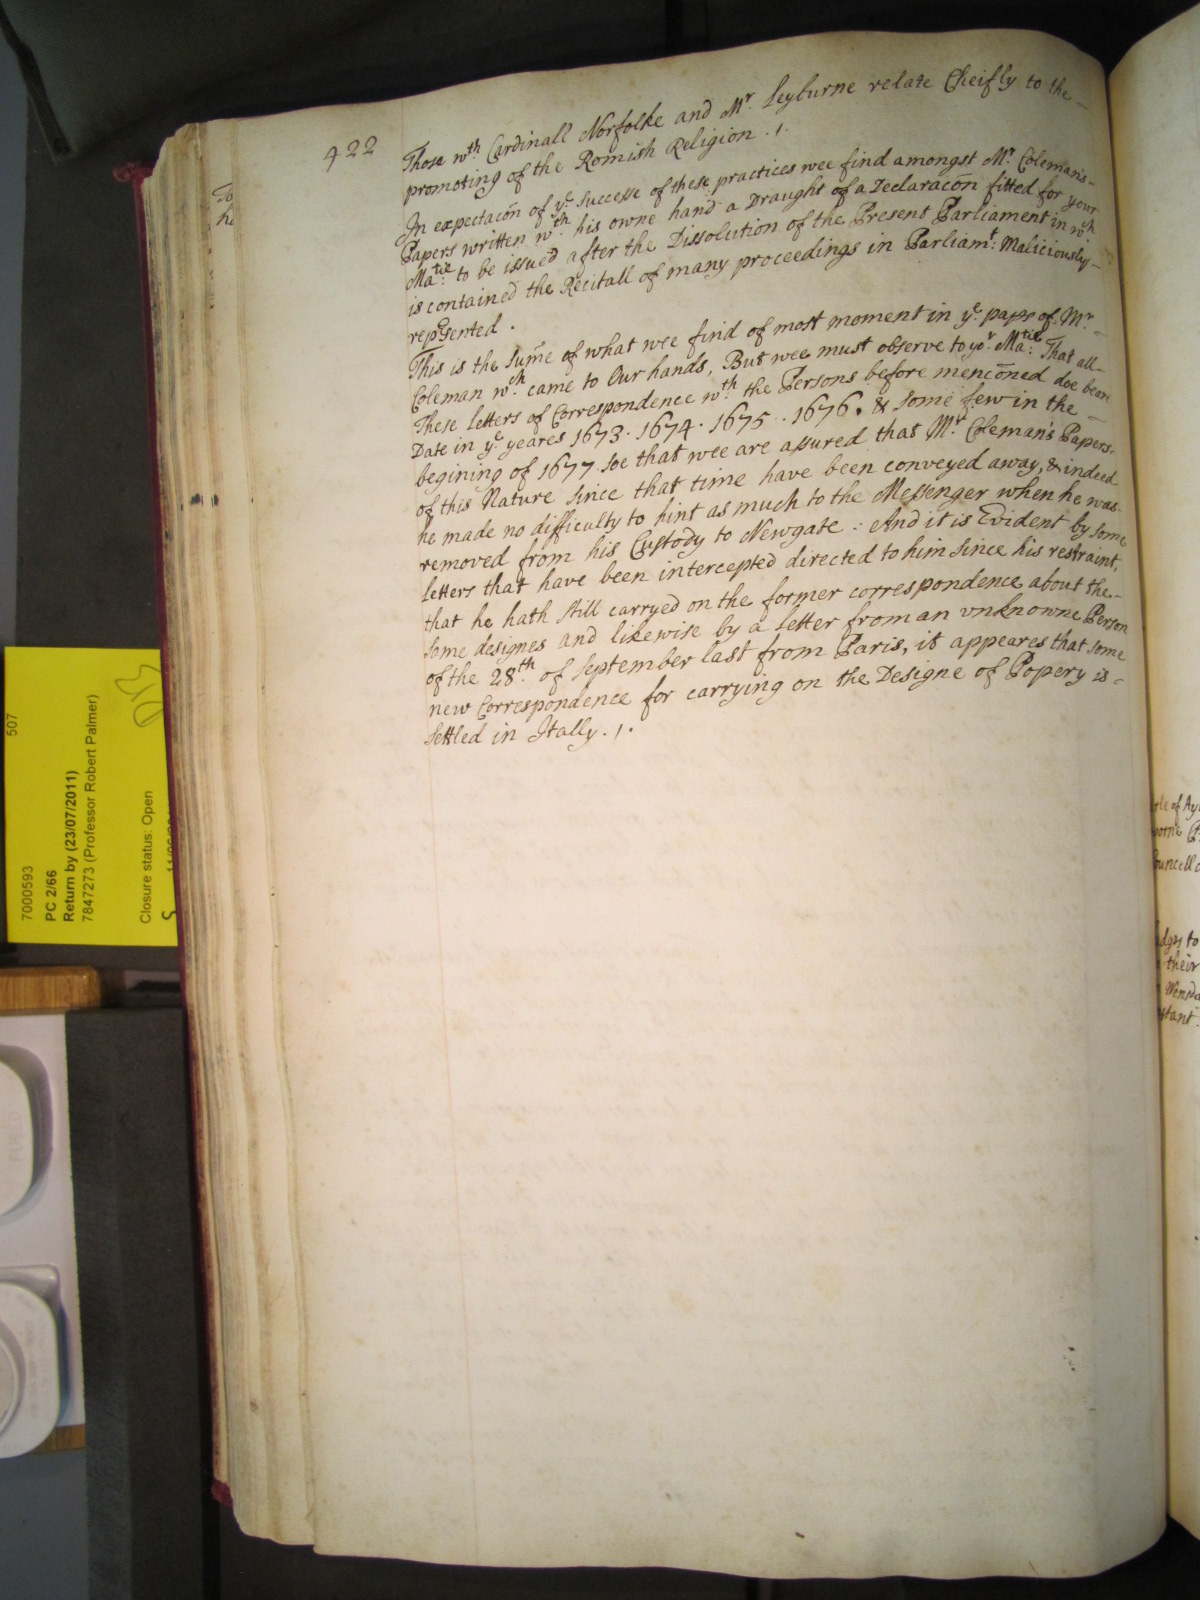 422
Those wth. Cardinall Norfolke and Mr. Leyburne relate Cheifly to the
promoting of the Romish Religion . /.
In expectacōn of ye. Successe of these practices wee find amongst Mr. Coleman's
Papers written wth. his owne hand a Draught of a Declaracōn fitted for your
Matie. to be issued after the Dissolution of the Present Parliament in wch
is contained the Recitall of many proceedings in Parliamt: Maliciously
represented .
This is the Sum̄e of what wee find of most moment in ye. papr̄s of Mr.
Coleman wch. came to Our hands, But wee must observe to yor. Matie. That all
These letters of Correspondence wth. the Persons before menc̄oned doe beare
Date in ye. yeares 1673. 1674. 1675 . 1676. & some few in the
begining of 1677. soe that wee are assured that Mr. Coleman's Papers
of this Nature since that time have been conveyed away, & indeed
he made no difficulty to hint as much to the Messenger when he was
removed from his Custody to Newgate : And it is Evident by some
letters that have been intercepted directed to him since his restraint,
that he hath still carryed on the former correspondence about the
same designes and likewise by a letter from an vnknowne Person
of the 28th. of September last from Paris, it appeares that some
new Correspondence for carrying on the Designe of Popery is
settled in Itally . /.
To
he
507
7000593
PC 2/66
Return by (23/07/2011)
7847273 (Professor Robert Palmer)
Closure status: Open
of Ay
their